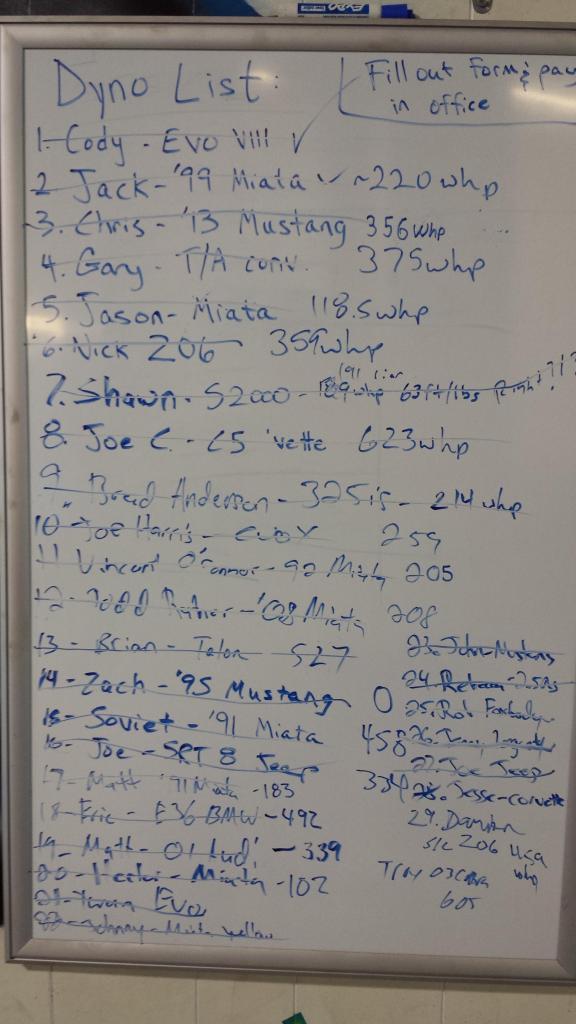 EXPO
Dyno List:
Fill out form & pay
in office
1. Cody - EVO VIII ✓
2 Jack - '99 Miata ✓ ~220whp
3. Chris - '13 Mustang 356whp
4. Gary - T/A conv. 375whp
5. Jason - Miata 118.5whp
6. Nick Z06 359whp
7. Shawn - S2000 - whp 63ft/lbs
8. Joe C. - C5 'vette 623whp
9 Brad Anderson - 325is - 214whp
10 - Joe Harris - evo X 259
11 Vincent O'Connor - 92 Miata 205
12 - Todd - '08 Miata 208
13 - Brian - Talon 527
14 - Zach - '95 Mustang 0
15 - Soviet - '91 Miata 458
16 - Joe - SRT 8 Jeep
17 - Matt '91 Miata - 183 334
18 - Eric - E36 BMW - 492
19 - Matt - 01 Aud! - 339
20 - Miata - 102
21 - Evo
22 - Johnny - Miata yellow
23. John - Mustang
24.
25. Rob Foxbody
26.
27. Joe Jeep
28. Jesse - corvette
29. Damian
Z06
whp
03
605